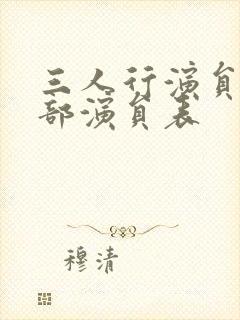 三人行演员
部演员表
穆清